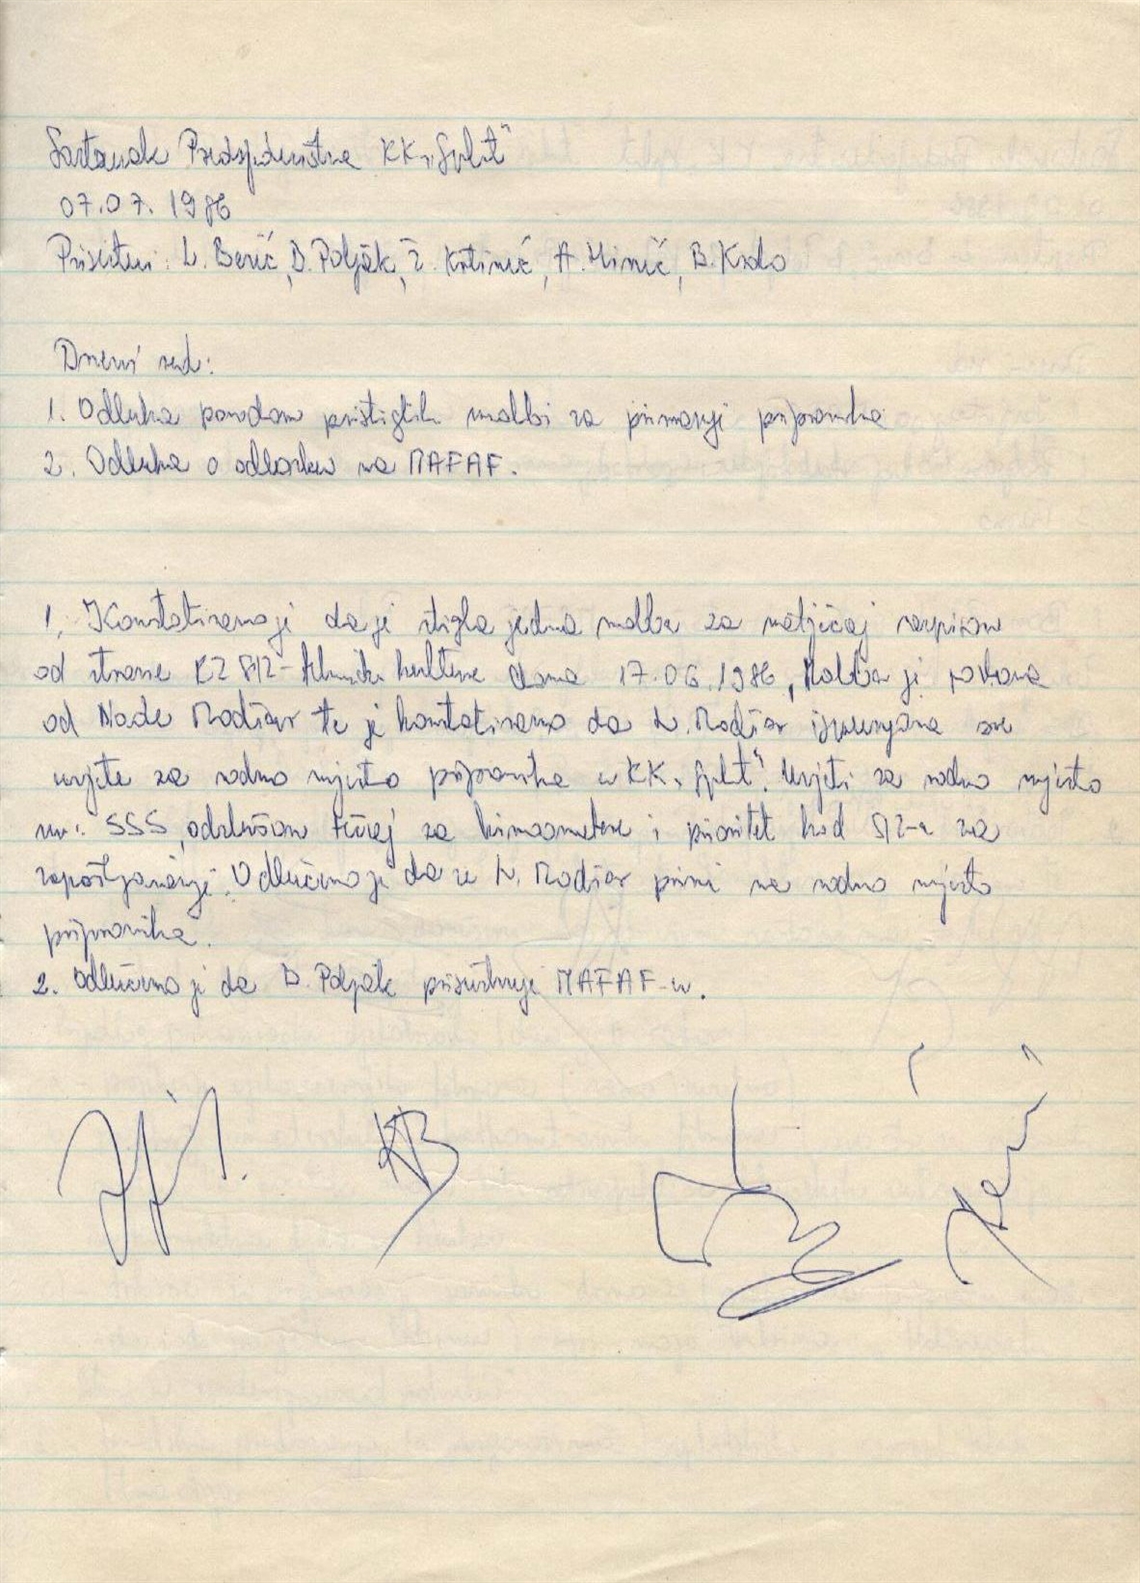 Sastanak Predsjedništva KK „Split“
07.07.1986
Prisutni: L. Berić, D. Poljak, Ž. Krtinić, A. Mimić, B. Krolo
Dnevni red:
1. Odluka povodom pristiglih molbi za primanje pripravnika
2. Odluka o odlasku na MAFAF.
1. Konstatirano je da je stigla jedna molba za natječaj raspisan
od strane KZ SIZ-a kulture dana 17.06.1986, Molba je poslana
od Nade te je konstatirano da N. ispunjava sve
uvjete za radno mjesto pripravnika u KK „Split“. Uvjeti za radno mjesto
su: SSS, odslušan tečaj za kinoamatere i prioritet kod SIZ-a za
zapošljavanje. Odlučeno je da se N. primi na radno mjesto
pripravnika.
2. Odlučeno je da D. Poljak prisustvuje MAFAF-u.
KB